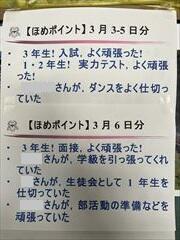 【ほめポイント】3月3-5日分
・ 3年生!入試,よく頑張った!
・ 1・2年生! 実力テスト,よく頑張った!
・ さんが,ダンスをよく仕切っていた
【ほめポイント】3月6日分
・ 3年生!面接,よく頑張った!
・ さんが,学級を引っ張ってくれていた
・ さんが,生徒会として1年生を仕切っていた
・ さんが,部活動の準備などを頑張っていた